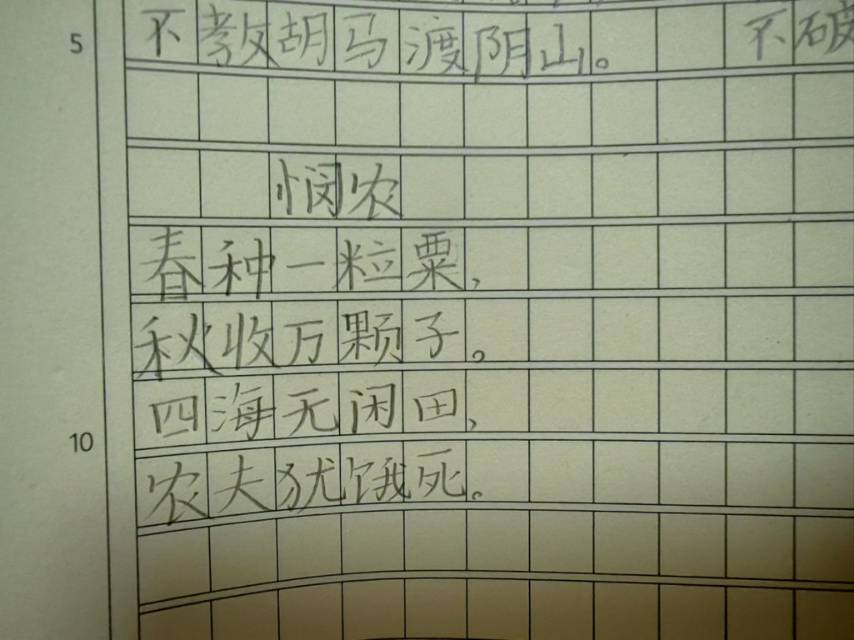 5 不教胡马渡阴山。 不破
悯农
春种一粒粟,
秋收万颗子。
四海无闲田,
10 农夫犹饿死。